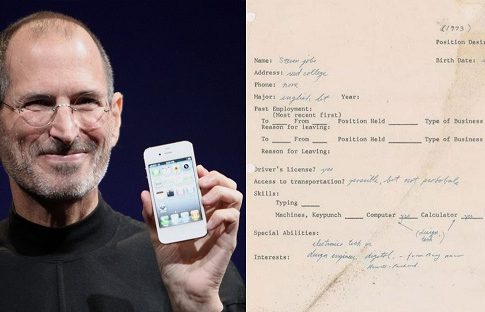 (1973)
Position Desi
Name: Steven jobs
Birth Date:
Address: reed college
Phone: none
Major: english, lit Year:
Past Employment:
(Most recent first)
To ___ From ___ Position Held ___ Type of Business
Reason for leaving:
To ___ From ___ Position Held ___ Type of Business
Reason for Leaving:
Driver's License? yes
Access to transportation? possible, but not probable
Skills:
Typing ___
Machines, Keypunch ___ Computer yes Calculator yes
(design, tech)
Special Abilities:
electronics tech or
Interests: design engineer, digital. – from Bay near
Hewitt-Packard